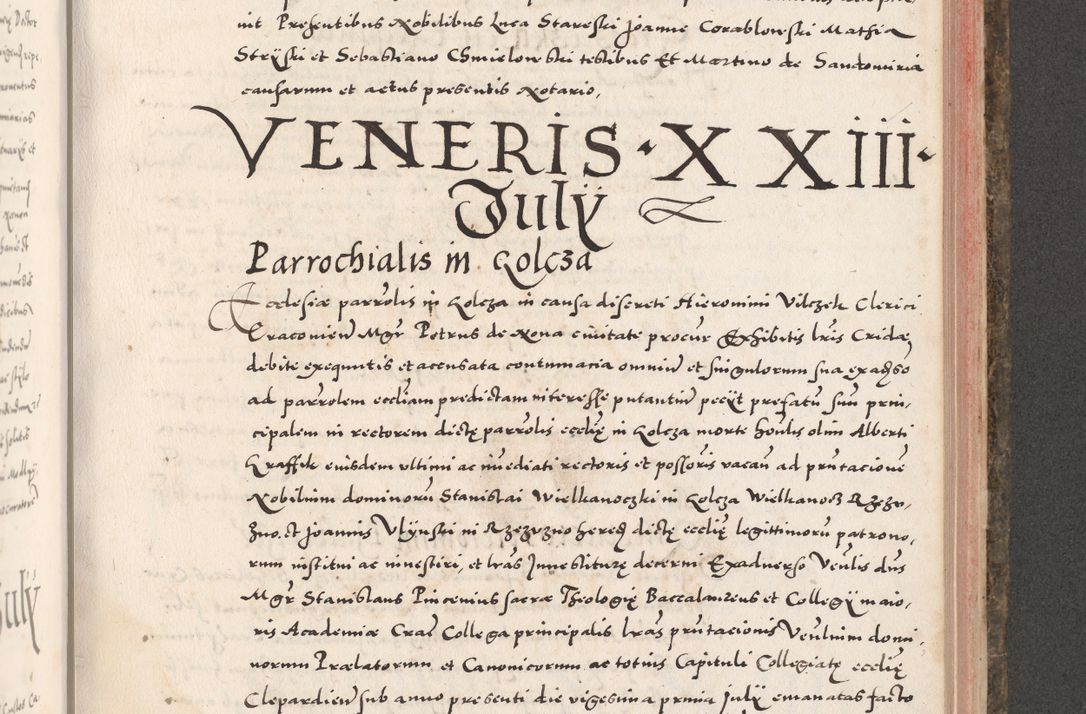 nit Presentibus Nobilibus Luca Stareski Joanne Corablowski Mathia
Stryski et Sebastiano Chmielowski testibus Et Martino de Sandomiria
causarum et actus presentis Notario,
VENERIS · X X iii ·
Julÿ
Parrochialis in Golcza
Ecclesiæ parrolis in Golcza in causa discreti Hieronimi Vilczek Clerici
Cracovien Mgr Petrus de Nona civitate procur Exhibitis lris Cridæ
debite exequutis et accusata contumacia omniu et singulorum sua ex adverso
ad parrolem eccliam predictam interesse putantiu peciit prefatu suu prin,
cipalem in rectorem dictę parrolis ecclię in Golcza morte honlis olim Alberti
Graffik eiusdem ultimi ac imediati rectoris et possoris vacan ad prntacione
Nobilium dominoru Stanislai Wielkanoczki in Golcza Wielkanocz Rzezu,
zno. et Joannis Ulÿnski in Rzezuzno hered dictę ecclię legittimoru patrono,
rum institui ac investiri, et lras Investiturę decerni Ex adverso Venlis dns
Mgr Stanislaus Pincenius sacræ Theologię Baccalaureus et Collegÿ maio,
ris Academiæ Crac Collega principalis lras prntacionis Venlium domi,
norum Prælatorum et Canonicorum ac totius Capituli Collegiatę ecclię
Clepardien sub anno presenti die vigesima prima Julÿ emanatas facto